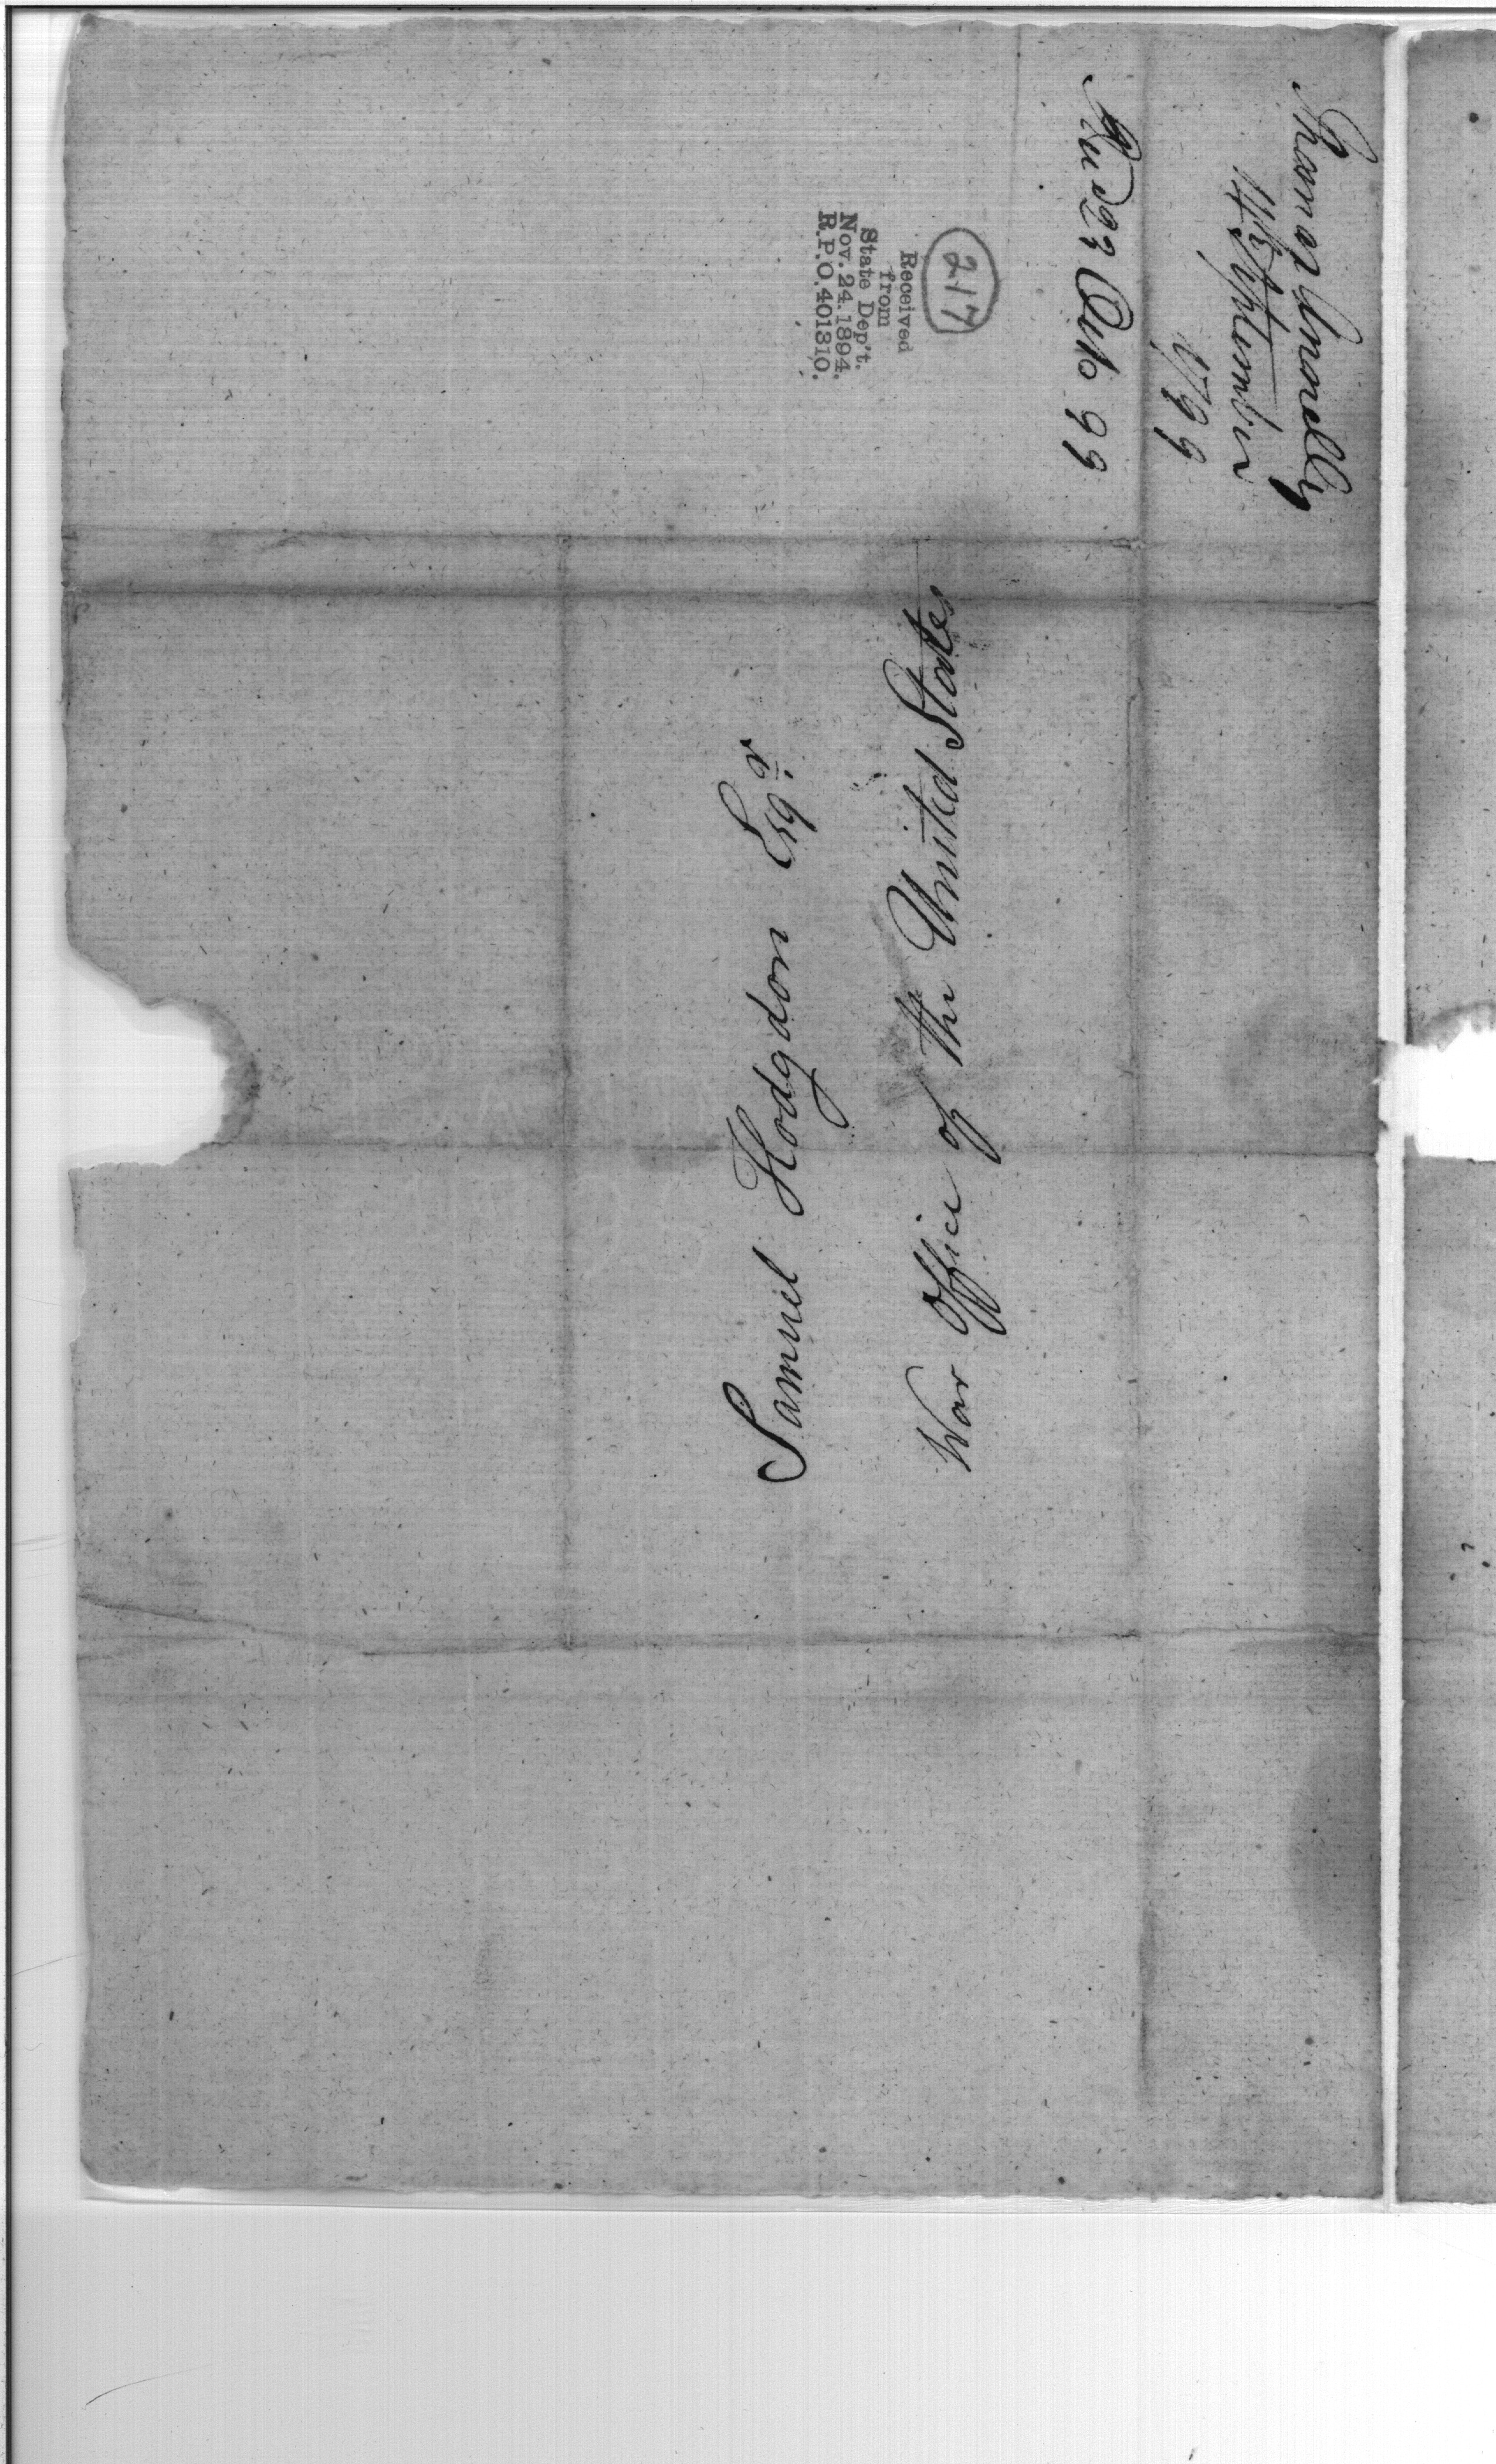 Thomas Annnelly
14th September
1799
Recd 23 Octo 99
217
Received
from
State Dep't.
Nov. 24. 1894.
R.P.O. 401310.
Samuel Hodgdon Esqr.
War Office of the United States